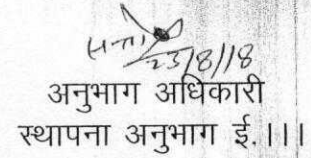 23/8/18
अनुभाग अधिकारी
स्थापना अनुभाग ई.।।।